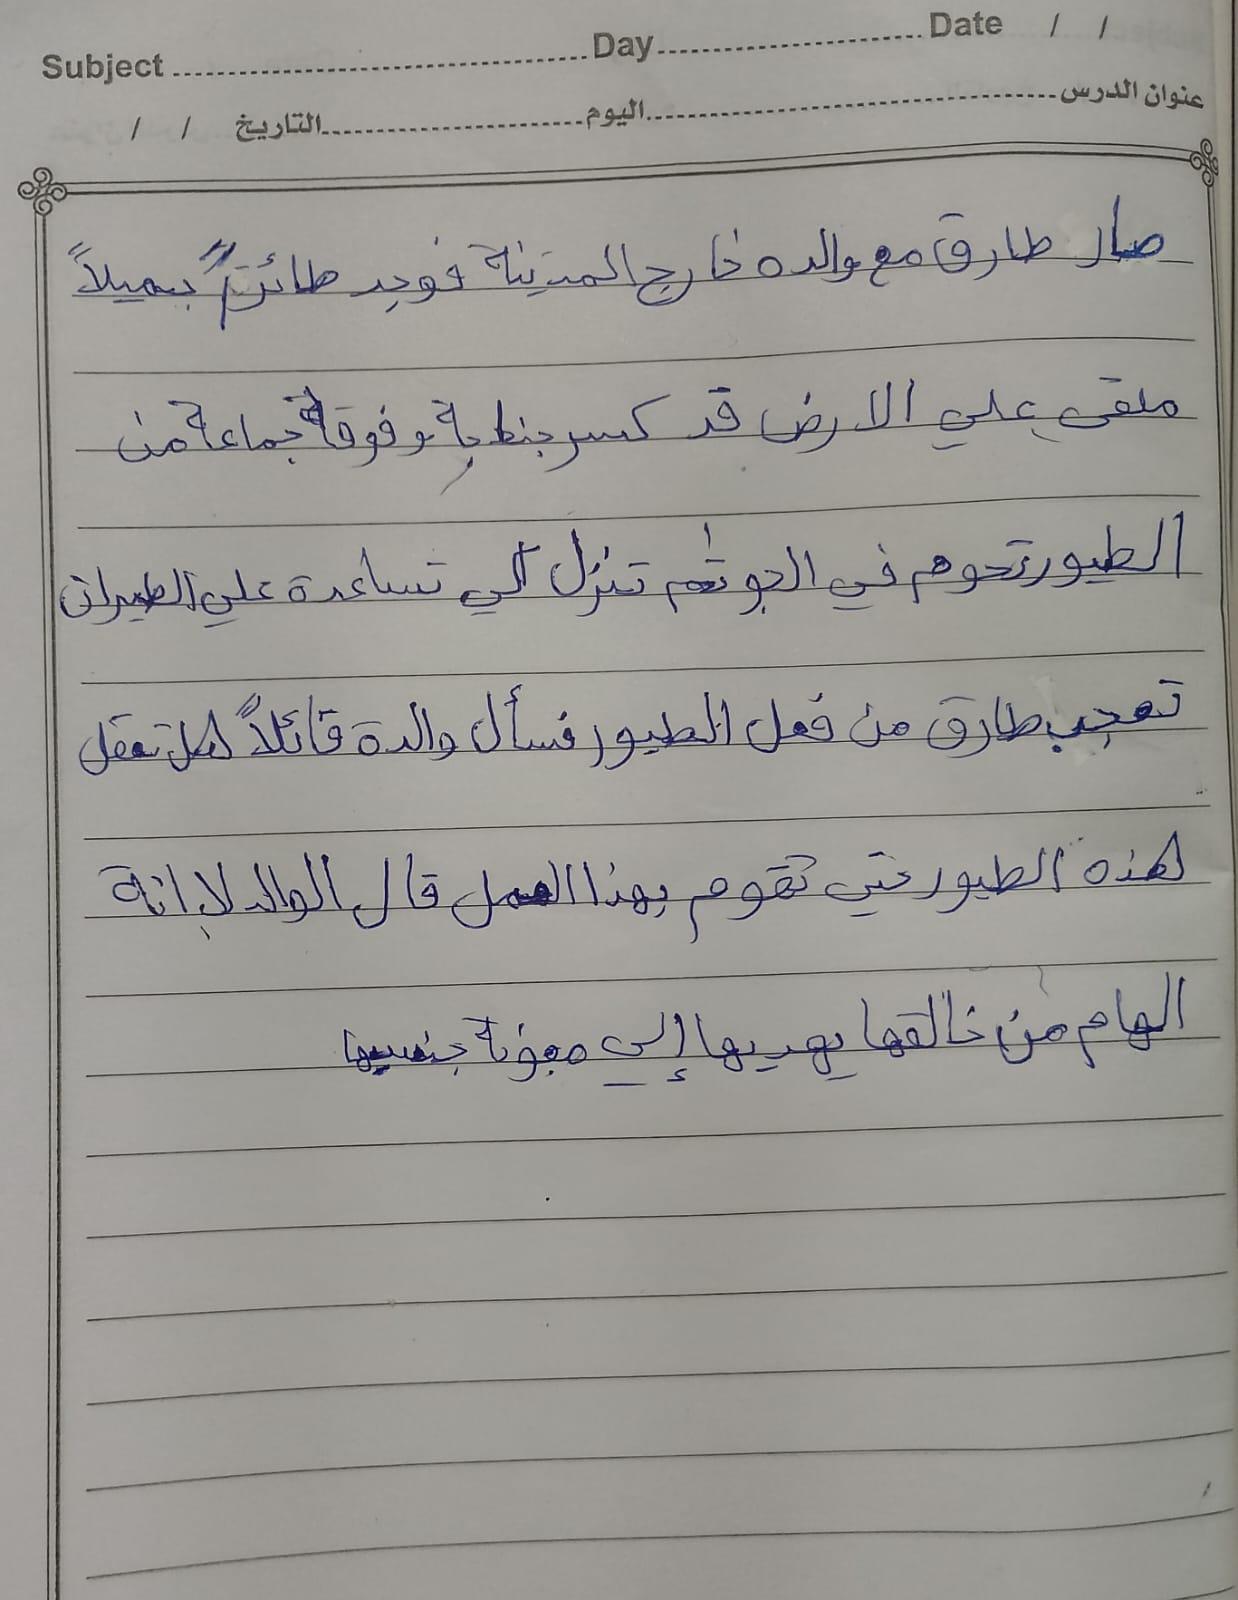 Subject ........ Day ........ Date / /
عنوان الدرس ........ اليوم ........ التاريخ / /
صار طارق مع والده خارج المدينة فوجد طائرً جميلاً
ملقى علي الارض قد كسر جنطية وفوقة جماعة من
الطيور تحوم في الجو ثم تنزل الي تساعدة علي الطيران
تعجب طارق من فعل الطيور فسأل والدة قائلاً هل تعقل
هذه الطيور حتي تقوم بهذا العمل قال الوالد لا انة
الهام من خالقها يهديها إلي معونة جنسيها